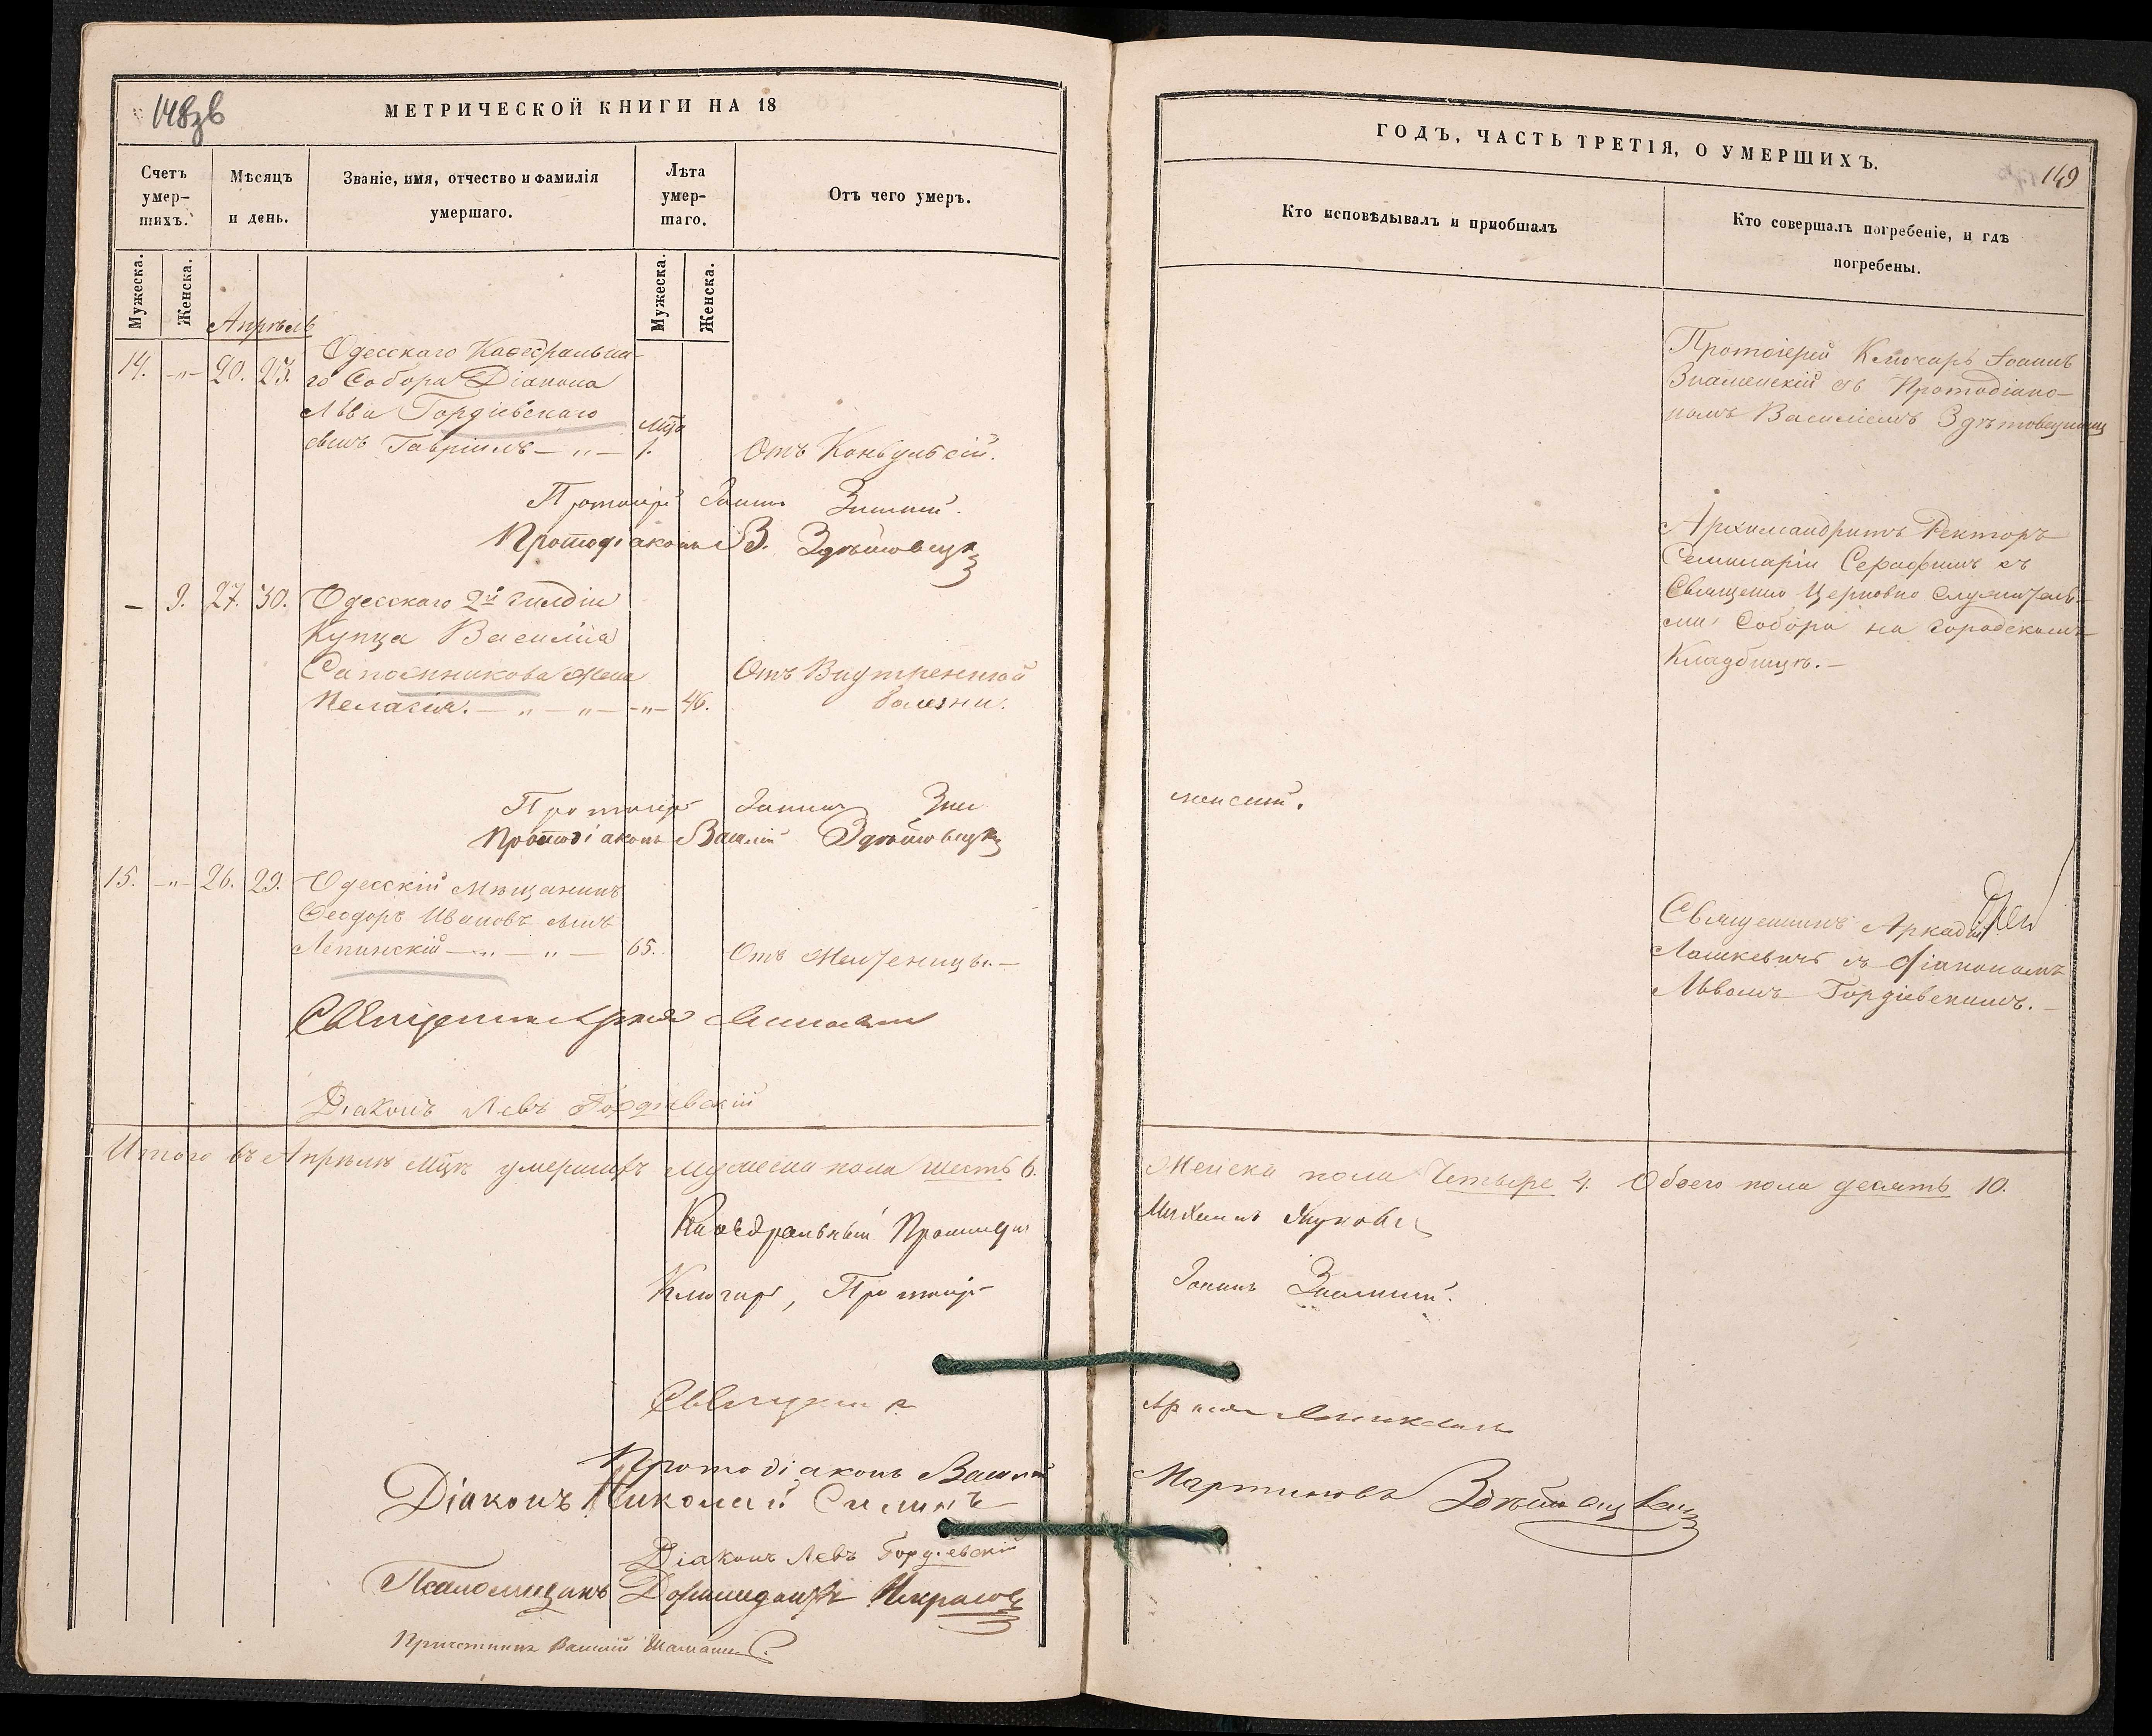 148зв
МЕТРИЧЕСКОЙ КНИГИ НА 18
Счетъ умер-шихъ.
Мѣсяцъ и день.
Званіе, имя, отчество и фамилія умершаго.
Лѣта умер-шаго.
Отъ чего умеръ.
Мужеска.
Женска.
Мужеска.
Женска.
Апрѣль
14. -"- 20. 23. Одесскаго Каѳедральна-
го Собора Діакона
Льва Гордіевскаго
сынъ Гавріилъ - " - мца 1. Отъ Конвульсій.
Протоіерей Іоаннъ
Протодіаконъ В. Здѣтовецкій
- 9. 27. 30. Одесскаго 2й гильдіи
Купца Василія
Сапожникова жена
Пелагія. - " - " - " - 46. Отъ Внутренней
болезни.
Протоіерей Іоаннъ Зна
менскій.
Протодіаконъ Василій Здѣтовецкій
15. -"- 26. 29. Одесскій Мѣщанинъ
Ѳеодоръ Ивановъ сынъ
Лепинскій - " - " - 65. Отъ
Діаконъ Левъ Гордіевскій
Итого въ Апрѣлѣ мцѣ умершихъ мужеска пола шесть 6.
Каѳедральный Протоіерей
Ключарь, Протоіерей
Протодіаконъ Василій
Діаконъ Николай
Діаконъ Левъ Гордіевскій
Псаломщикъ
Причетникъ Василій
ГОДЪ, ЧАСТЬ ТРЕТІЯ, О УМЕРШИХЪ.
149
Кто исповѣдывалъ и пріобшалъ
Кто совершалъ погребеніе, и гдѣ погребены.
Протоіерей Ключарь Іоаннъ
Знаменскій съ Протодіако-
номъ Василіемъ Здѣтовецкимъ
Архимандритъ Ректоръ
Семинаріи Серафимъ съ
Священно Церковно Служителя-
ми Собора на городскомъ
Кладбищѣ. -
Священникъ Аркадій
Лашкевичъ съ Діакономъ
Львомъ Гордіевскимъ. -
Женска пола Четыре 4. Обоего пола десять 10.
Михаилъ
Іоаннъ
Мартиновъ